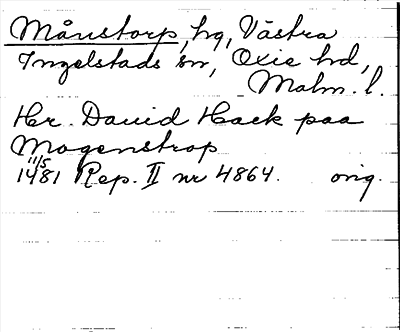 Månstorp, hg, Västra
Ingelstads sn, Oxie hd,
Malm. l.
Her. David Hack paa
Mogenstrop
11/5
1481 Rep. II nr 4864. orig.